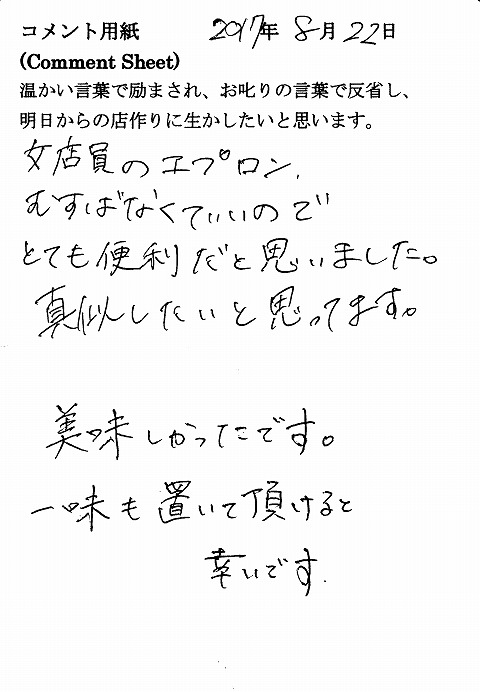 コメント用紙 2017年 8月 22日
(Comment Sheet)
温かい言葉で励まされ、お叱りの言葉で反省し、
明日からの店作りに生かしたいと思います。
女店員のエプロン、
むすばなくていいので
とても便利だと思いました。
真似したいと思ってます。
美味しかったです。
一味も置いて頂けると
幸いです.